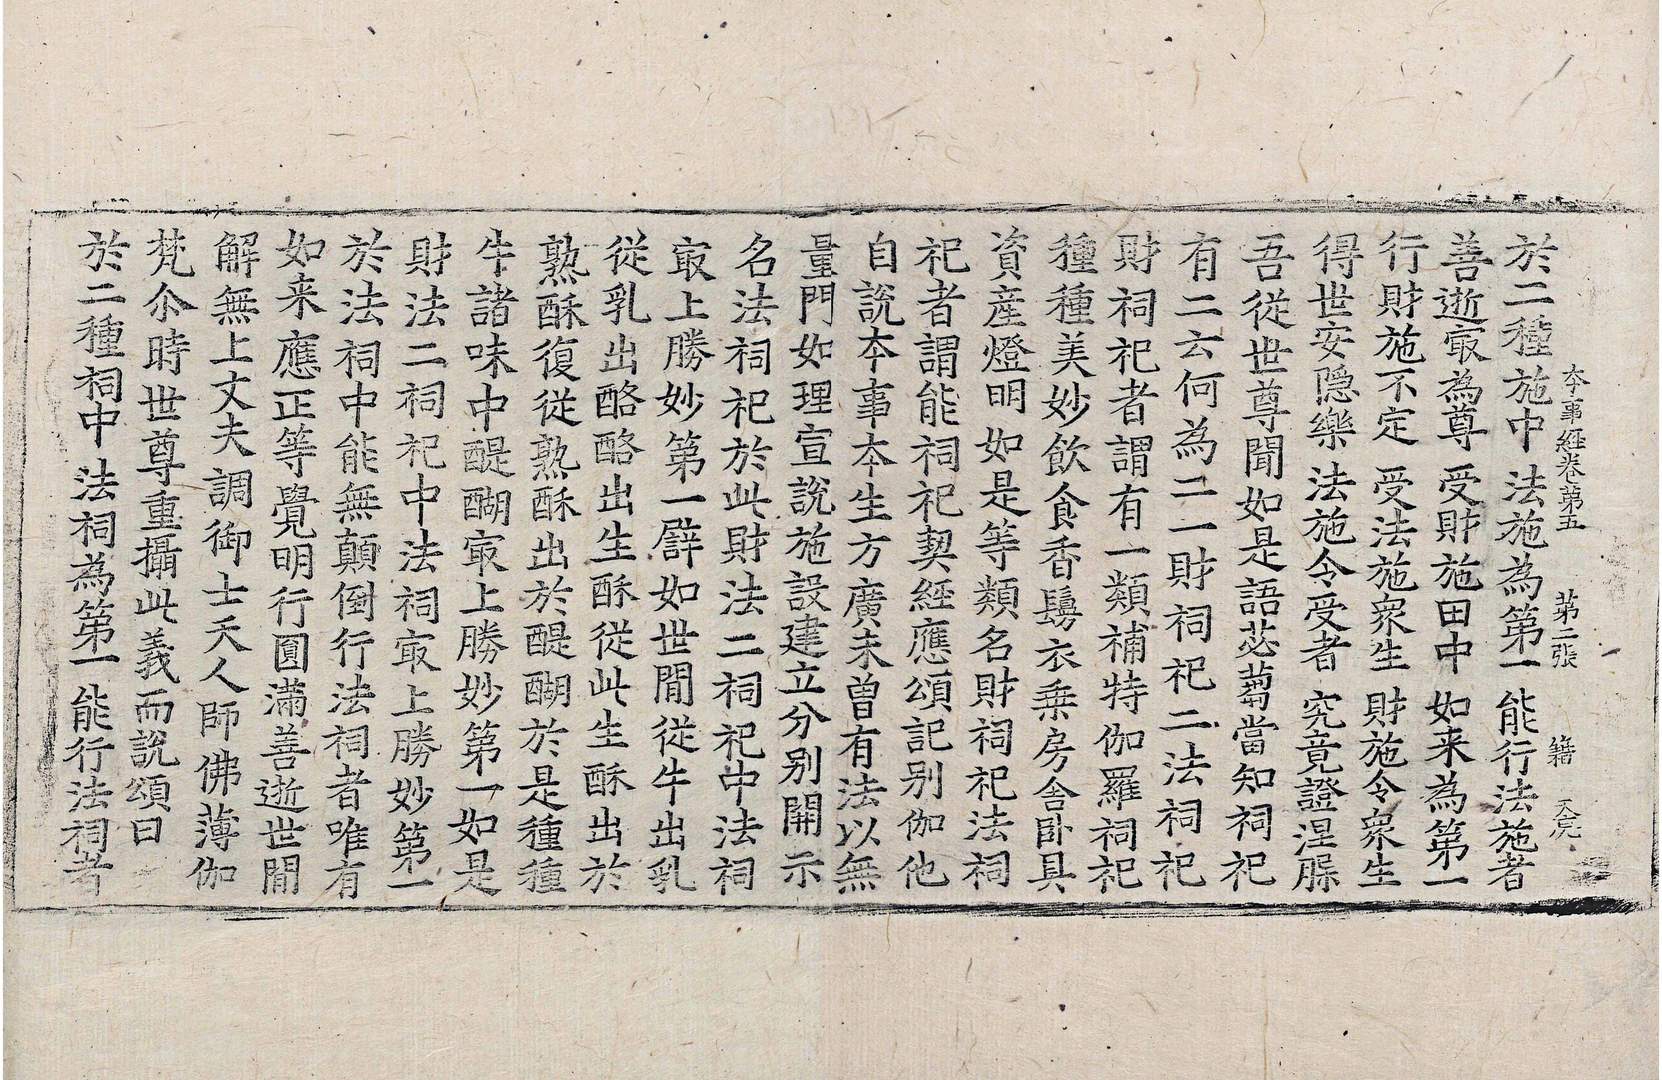 本事經卷第五 第二張 籍 天亮
於二種施中 法施為第一 能行法施者
善逝㝡為尊 受財施田中 如来為第一
行財施不定 受法施衆生 財施令衆生
得世安隱樂 法施令受者 究竟證涅槃
吾從世尊聞如是語苾蒭當知祠祀
有二云何為二一財祠祀二法祠祀
財祠祀者謂有一類補特伽羅祠祀
種種美妙飲食香鬘衣乗房舎卧具
資産燈明如是等類名財祠祀法祠
祀者謂能祠祀契經應頌記别伽他
自說本事本生方廣未曾有法以無
量門如理宣說施設建立分别開示
名法祠祀於此財法二祠祀中法祠
㝡上勝妙第一譬如世間從牛出乳
從乳出酪酪出生酥從此生酥出於
熟酥復從熟酥出於醍醐於是種種
牛諸味中醍醐㝡上勝妙第一如是
財法二祠祀中法祠㝡上勝妙第一
於法祠中能無顛倒行法祠者唯有
如来應正等覺明行圓滿善逝世間
解無上丈夫調御士天人師佛薄伽
梵尒時世尊重攝此義而說頌曰
於二種祠中 法祠為第一 能行法祠者